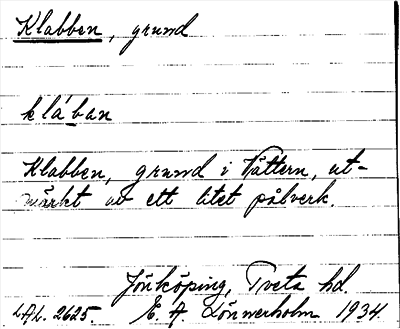 Klabben, grund
klában
Klabben, grund i Vättern, ut-
märkt av ett litet pålverk.
Jönköping, Tveta hd.
LAL. 2625. E. A. Lönnerholm 1934.